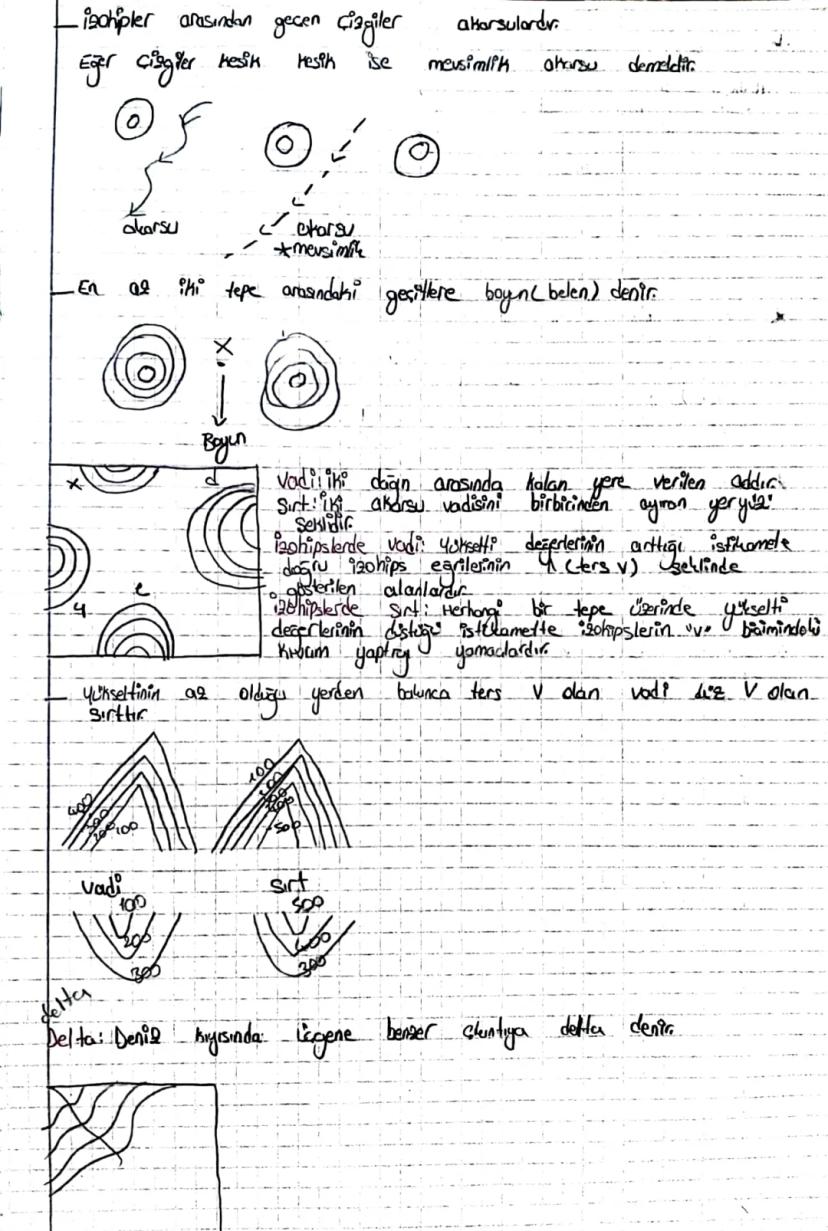 izohipler arasından geçen çizgiler akarsulardır.
Eğer çizgiler kesik kesik ise mevsimlik akarsu demektir.
akarsu
akarsu
*mevsimlik
En az iki tepe arasındaki geçitlere boyn(belen) denir.
X
Boyun
x
d
y
e
Vadi: iki dağın arasında kalan yere verilen addır.
Sırt: iki akarsu vadisini birbirinden ayıran yeryüz
şeklidir.
izohipslerde vadi: Yükselti değerlerinin arttığı istikamete
doğru izohips eğrilerinin Λ (ters v) şeklinde
gösterilen alanlardır.
izohipslerde Sırt: Herhangi bir tepe üzerinde yükselti
değerlerinin düştüğü istikamette izohipslerin "v" biçimindeki
kıvrım yaptığı yamaçlardır.
Yükseltinin az olduğu yerden bakınca ters V olan vadi düz V olan
sırttır.
400
300
200 100
100
500
vadi
100
200
300
sırt
500
400
300
delta
Delta: Deniz kıyısında üçgene benzer çıkıntıya delta denir.